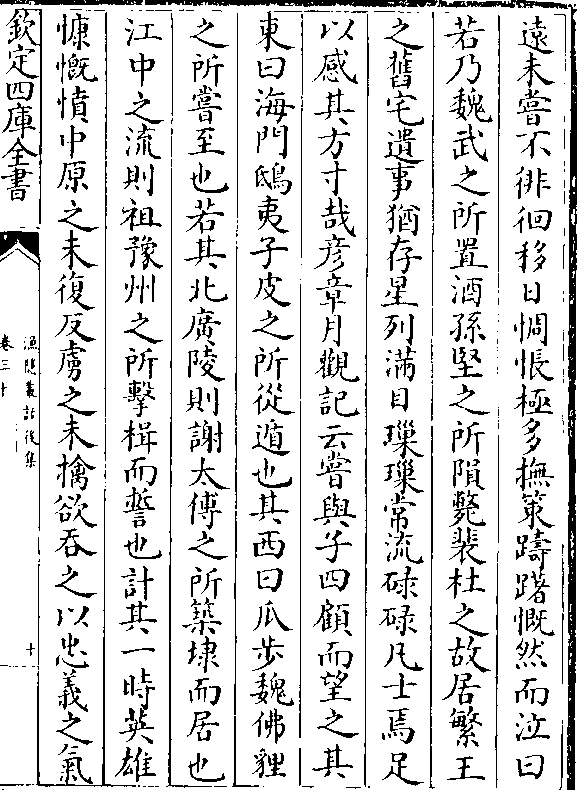 遠未嘗不徘徊移日惆悵極多撫策躊躇慨然而泣曰
若乃魏武之所置酒孫堅之所隕斃裴杜之故居繁王
之舊宅遺事猶存星列滿目璅璅常流碌碌凡士焉足
以感其方寸哉彦章月觀記云嘗與子四顧而望之其
東曰海門鴟夷子皮之所從遁也其西曰瓜步魏佛貍
之所嘗至也若其北廣陵則謝太傅之所築埭而居也
江中之流則祖豫州之所擊楫而誓也計其一時英雄
慷慨憤中原之未復反虜之未擒欲吞之以忠義之氣
欽定四庫全書
漁隱叢話後集
卷三十
十